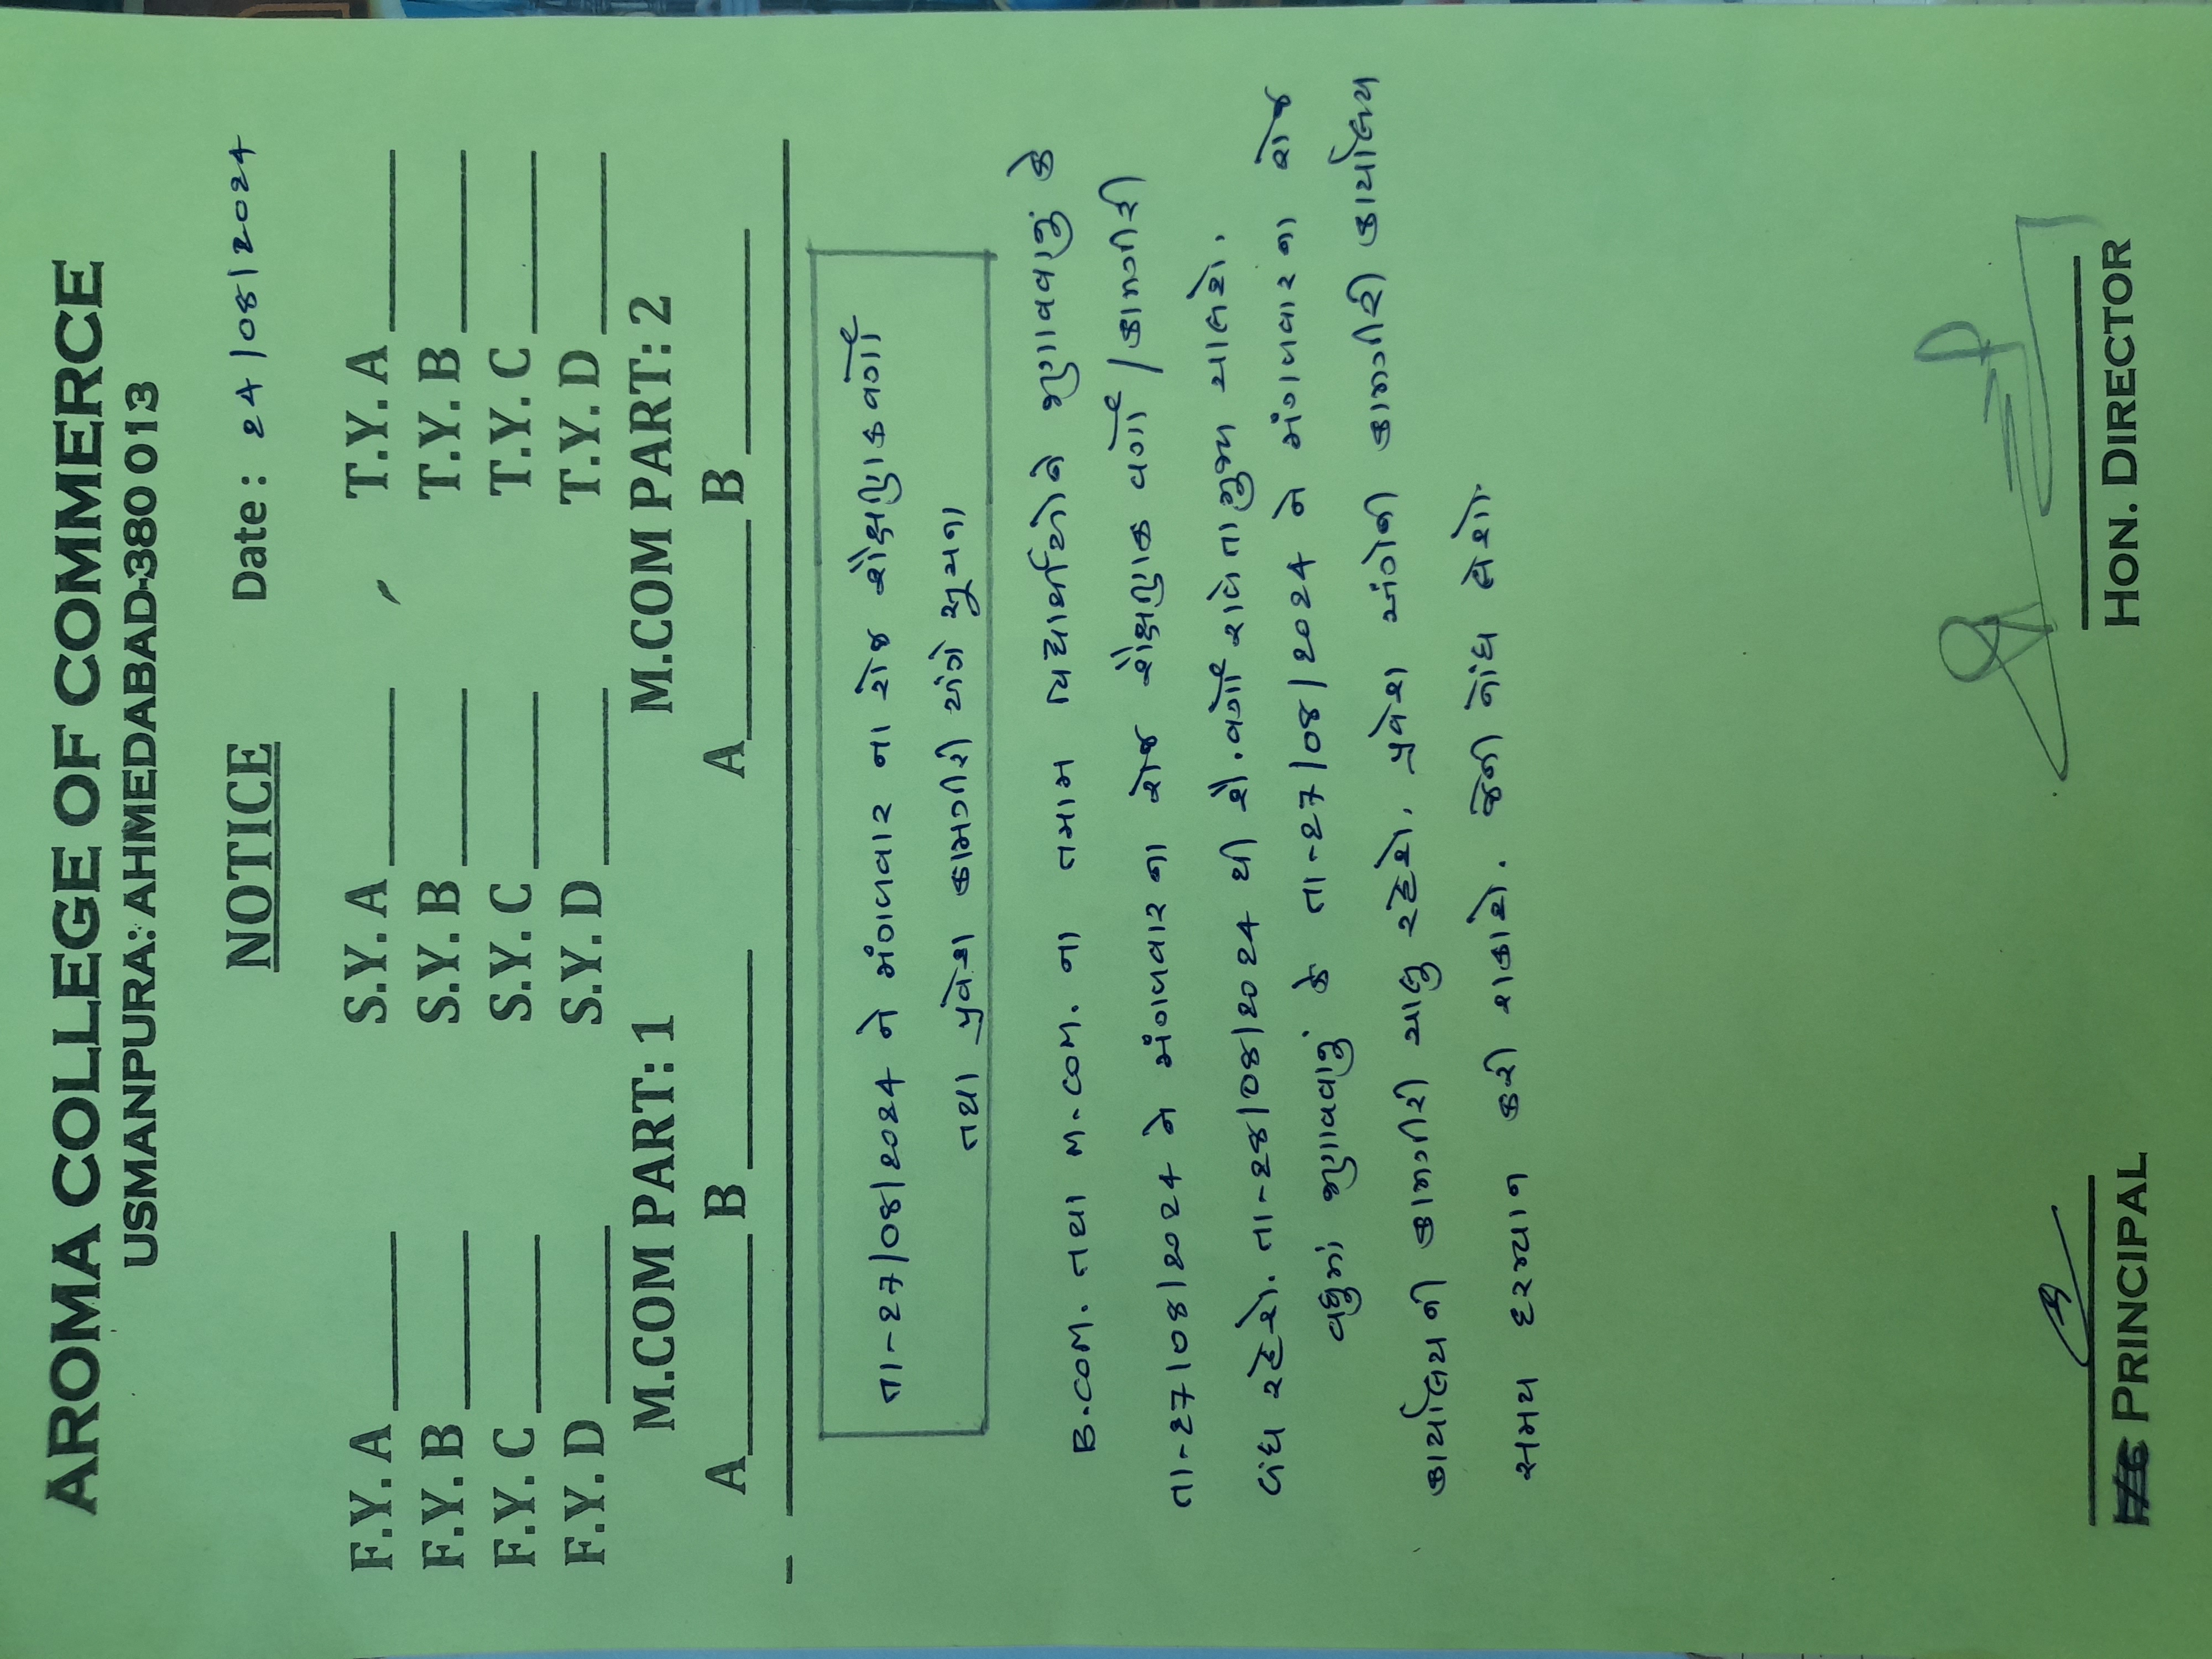 AROMA COLLEGE OF COMMERCE
USMANPURA: AHMEDABAD-380 013
NOTICE Date: 24/08/2024
F.Y. A S.Y. A T.Y. A
F.Y. B S.Y. B T.Y. B
F.Y. C S.Y. C T.Y. C
F.Y. D S.Y. D T.Y. D
M.COM PART: 1 M.COM PART: 2
A B A B
તા-27/08/2024 ને મંગળવાર ના રોજ શૈક્ષણિક વર્ગો
તથા પ્રવેશ કામગીરી અંગે સૂચના
B.COM. તથા M.COM. ના તમામ વિદ્યાર્થીઓને જણાવવાનું કે
તા-27/08/2024 ને મંગળવાર ના રોજ શૈક્ષણિક વર્ગો /કામગીરી
બંધ રહેશે. તા-28/08/2024 થી શૈ.વર્ગો રાબેતા મુજબ ચાલશે.
વધુમાં જણાવવાનું કે તા-27/08/2024 ને મંગળવાર ના રોજ
કાર્યાલયની કામગીરી ચાલુ રહેશે. પ્રવેશ અંગેની કામગીરી કાર્યાલય
સમય દરમ્યાન કરી શકાશે. જેની નોંધ લેશો.
PRINCIPAL HON. DIRECTOR